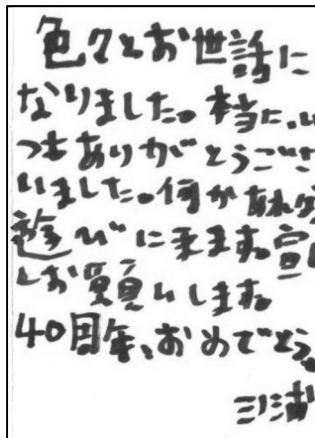 色々とお世話に
なりました。本当に、い
つもありがとうござ
いました。何かあれば
遊びに来ます。宣し
くお願いします。
40周年、おめでとう。
三浦